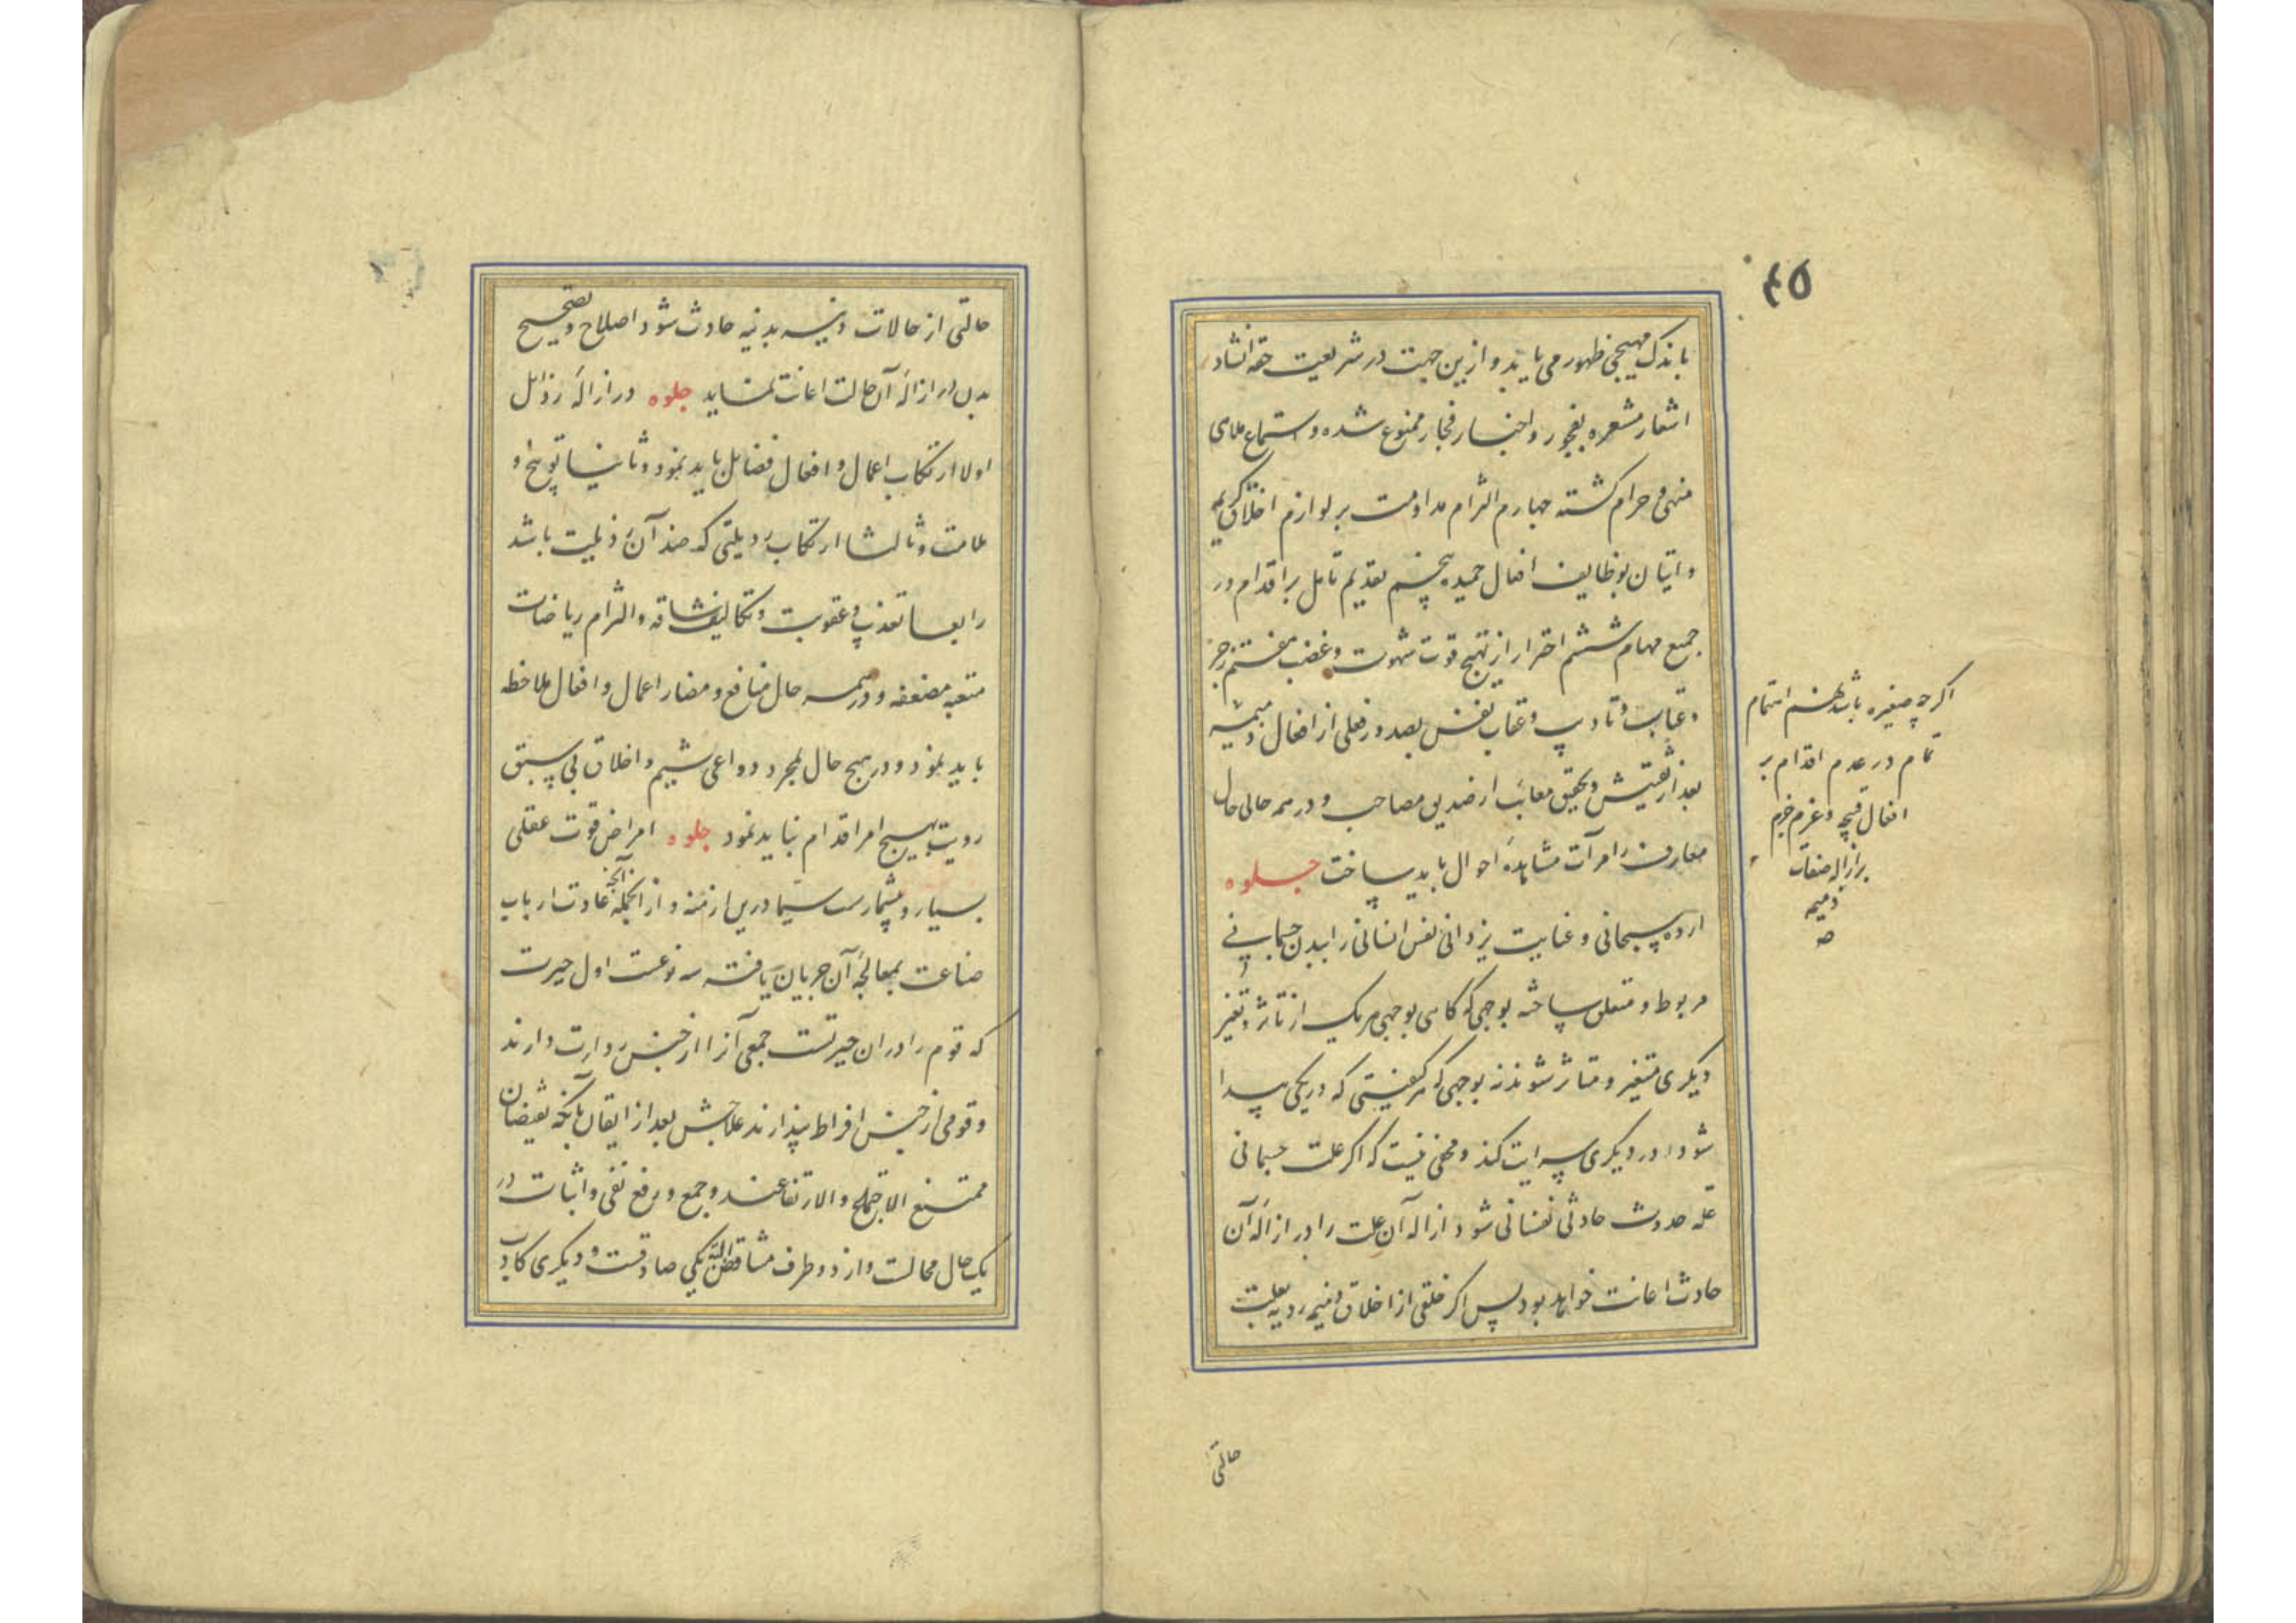 ۴۵
باندک مهیجی ظهور می یابد و ازین جهت در شریعت حقه انشاد
اشعار مشعره بفجور و اخبار فجار ممنوع شده و استماع ملاهی
منهی و حرام کشته چهارم التزام مداومت بر لوازم اخلاق کریمه
و اتیان بوظایف افعال حمیده پنجم تقدیم تامل بر اقدام در
جمیع مهام ششم احتراز از تهیج قوت شهوت و غضب هفتم زجر
و عتاب و تادیب و عقاب نفس بصدور فعلی از افعال ذمیمه
بعد از تفتیش و تحقیق معایب از صدیق مصاحب و در همه حالی حال
معارف را مرآت مشاهدهٔ احوال باید ساخت جلوه
اراده سبحانی و عنایت یزدانی نفس انسانی را ببدن جسمانی
مربوط و متعلق ساخته بوجهی که کاهی بوجهی هر یک از تاثر و تغیر
دیکری متغیر و متاثر شوند نه بوجهی که هر کیفیتی که در یکی پیدا
شود در دیکری سرایت کند و مخفی نیست که اکر علت جسمانی
علة حدوث حادثی نفسانی شود ازاله آن علت را در ازالهٔ آن
حادث اعانت خواهد بود پس اکر خلقی از اخلاق ذمیمه ردیه بعلت
اکرچه صغیره باشد هشتم اهتمام
تمام در عدم اقدام بر
افعال قبیحه و عزم جزم
بر ازاله صفات
ذمیمه
صح
حالتی
حالتی از حالات دنیه بدنیه حادث شود اصلاح و تصحیح
بدن در ازالهٔ آن حالت اعانت نماید جلوه در ازالهٔ رذائل
اولا ارتکاب اعمال و افعال فضایل باید نمود و ثانیا توبیخ و
ملامت و ثالثا ارتکاب رذیلتی که ضد آن رذیلت باشد
رابعا تعذیب و عقوبت و تکالیف شاقه و التزام ریاضات
متعبه مضعفه و در همه حال منافع و مضار اعمال و افعال ملاحظه
باید نمود و در هیچ حال بمجرد دواعی شیم و اخلاق بی سبق
رویت بهیچ امر اقدام نباید نمود جلوه امراض قوت عقلی
بسیار و بیشمارست سیما درین ازمنه و از انجمله آنچه عادت ارباب
صناعت بمعالجهٔ آن جریان یافته سه نوعست اول حیرت
که قوم را در ان حیرتست جمعی آنرا از جنس ردارت دارند
و قومی از جنس افراط پندارند علاجش بعد از ایقان بآنکه نقیضان
ممتنع الاجتماع و الارتفاعند و جمع و رفع نفی و اثبات در
یک حال محالست و از دو طرف متناقض البته یکی صادقست و دیکری کاذب